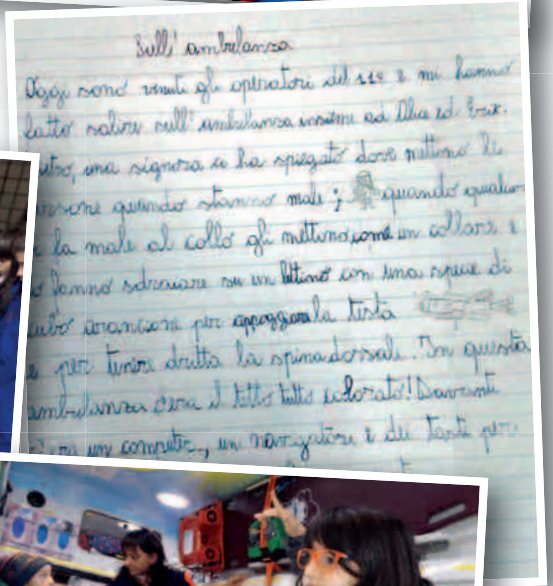 Sull'ambulanza
Oggi sono venuti gli operatori del 118 e mi hanno
fatto salire sull'ambulanza insieme ad Alice ed Erik.
una signora ci ha spiegato dove mettono le
persone quando stanno male; quando qualcu
ha male al collo gli mettono come un collare e
fanno sdraiare su un lettino con una specie di
cubo arancione per appoggiare la testa
e per tenere dritta la spina dorsale. In questa
ambulanza c'era il tetto tutto colorato! Davanti
c'era un computer, un navigatore e dei tasti per